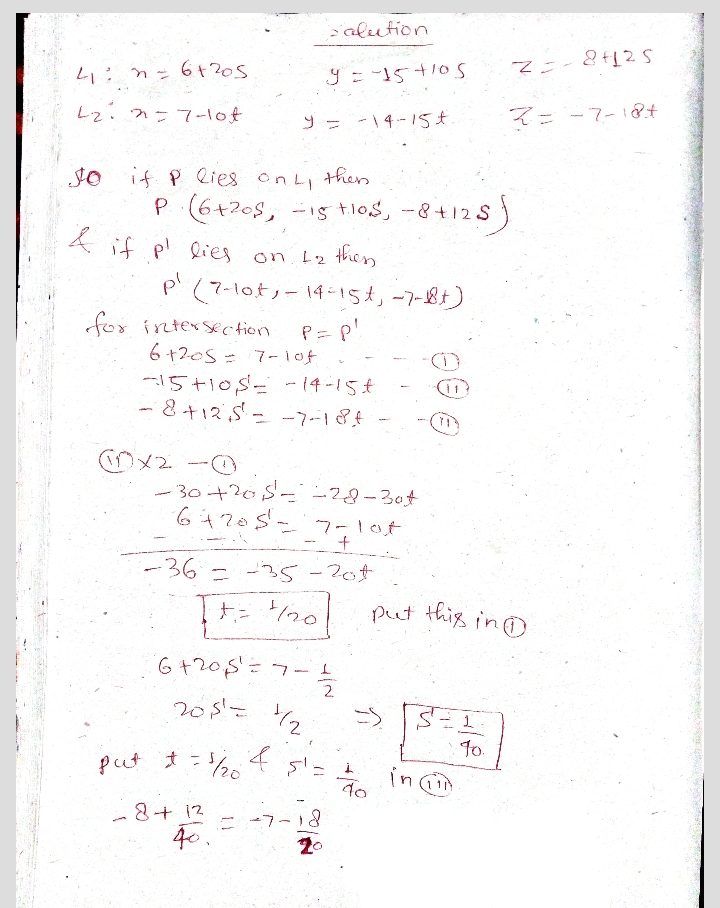 solution
L1: x = 6+20s y = -15+10s z = -8+12s
L2: x = 7-10t y = -14-15t z = -7-18t
so if P lies on L1 then
P (6+20s, -15+10s, -8+12s)
& if P' lies on L2 then
P' (7-10t, -14-15t, -7-18t)
for intersection P = P'
6+20s = 7-10t - - - (i)
-15+10s = -14-15t - (ii)
-8+12s = -7-18t - - (iii)
(ii) x2 - (i)
-30+20s = -28-30t
6+20s = 7-10t
- - - +
-36 = -35-20t
t = 1/20 put this in (i)
6+20s = 7 - 1/2
20s = 1/2 => s = 1/40
put t = 1/20 & s = 1/40 in (iii)
-8 + 12/40 = -7 - 18/20